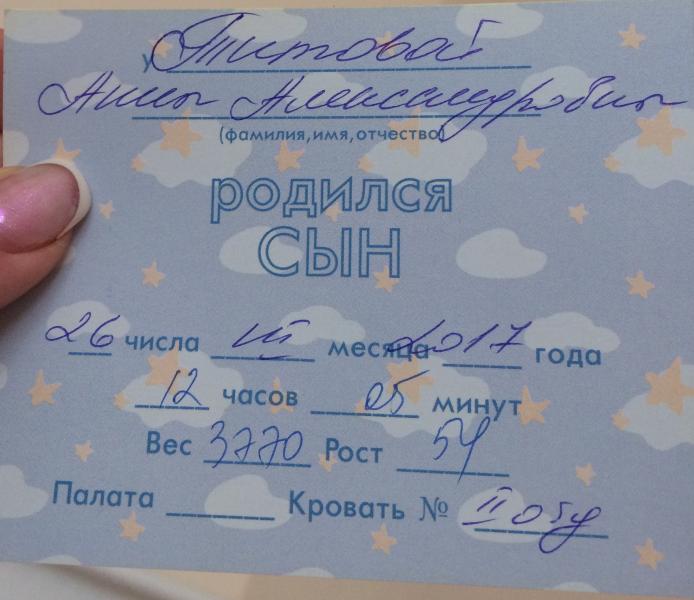 у Титовой
Анны Александровны
(фамилия, имя, отчество)
родился
СЫН
26 числа III месяца 2017 года
12 часов 05 минут
Вес 3770 Рост 54
Палата Кровать № II